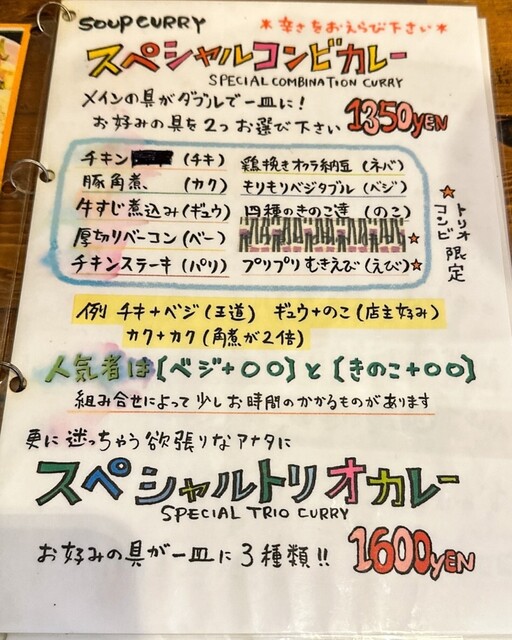 SOUP CURRY
*辛さをおえらび下さい*
スペシャルコンビカレー
SPECIAL COMBINATION CURRY
メインの具がダブルで一皿に!
お好みの具を2つお選び下さい 1350YEN
チキン (チキ) 鶏挽きオクラ納豆 (ネバ)
豚角煮、 (カク) もりもりベジタブル (ベジ)
牛すじ煮込み (ギュウ) 四種のきのこ達 (のこ)
厚切りベーコン (ベー)
チキンステーキ (パリ) プリプリむきえび (えび)
トリオ
コンビ 限定
例 チキ+ベジ (王道) ギュウ+のこ (店主好み)
カク+カク (角煮が2倍)
人気者は [ベジ+〇〇] と [きのこ+〇〇]
組み合せによって少しお時間のかかるものがあります
更に迷っちゃう欲張りなアナタに
スペシャルトリオカレー
SPECIAL TRIO CURRY
お好みの具が一皿に3種類!! 1600YEN